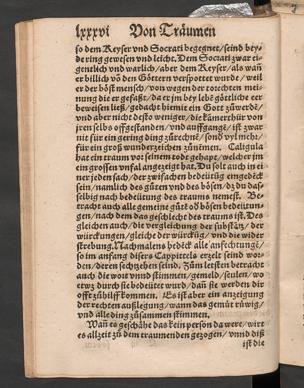 lxxxvi Von Träumen
so dem Keyser vnd Socrati begegnet / seind bey-
de ring gewesen vnd leicht. Dem Socrati zwar ei-
gentlich vnd warlich / aber dem Keyser / als wañ
er billich võ den Göttern verspottet wurde / weil
er der böst mensch / von wegen der torechten mei-
nung die er gefaßt / da er jm bey lebẽ götliche eer
beweisen ließ / gedacht hiemit ein Gott zůwerdẽ /
vnd aber nicht desto weniger / die kamerthür von
jren selbs offgestanden / vnd auffgangẽ / ist zwar
nit für ein gering ding zůrechnẽ / sond vyl mehr /
für ein groß wunderzeichen zůnẽmen. Caligula
hat ein traum vor seinem todt gehapt / welcher jm
ein grossen vnfal angezeigt hat. Du solt auch in ei-
ner jeden sach / der zwifachen bedeütũg eingedẽck
sein / namlich des gůten vnd des bösen / dz du das-
selbig nach bedeütung des traums nemest. Be-
tracht auch alle gemeine gůtẽ oď bösen bedeütun-
gen / nach dem das geschlecht des traums ist. Des
gleichen auch / die vergleichung der substãtz / der
würckungen / gleiche der würckũg / vnd die wider
strebung. Nachmalens bedẽck alle anfechtungẽ /
so im anfang disers Cappittels erzelt seind wor-
den / deren sechtzehen seind. Zům letsten betracht
auch die wort vnnd stimmen / gemeld / seulen / wo
etwz durch sie bedeütet wurd / dañ sie werden dir
offt zůhilff kommen. Es ist aber ein anzeigung
der rechten außlegung / wann das gemüt rüwig /
vnd alle ding zůsammen stimmen.
Wañ es geschähe das kein person da were / wirt
es allzeit zů dem traumenden gezogen / vnnd diß
ist die